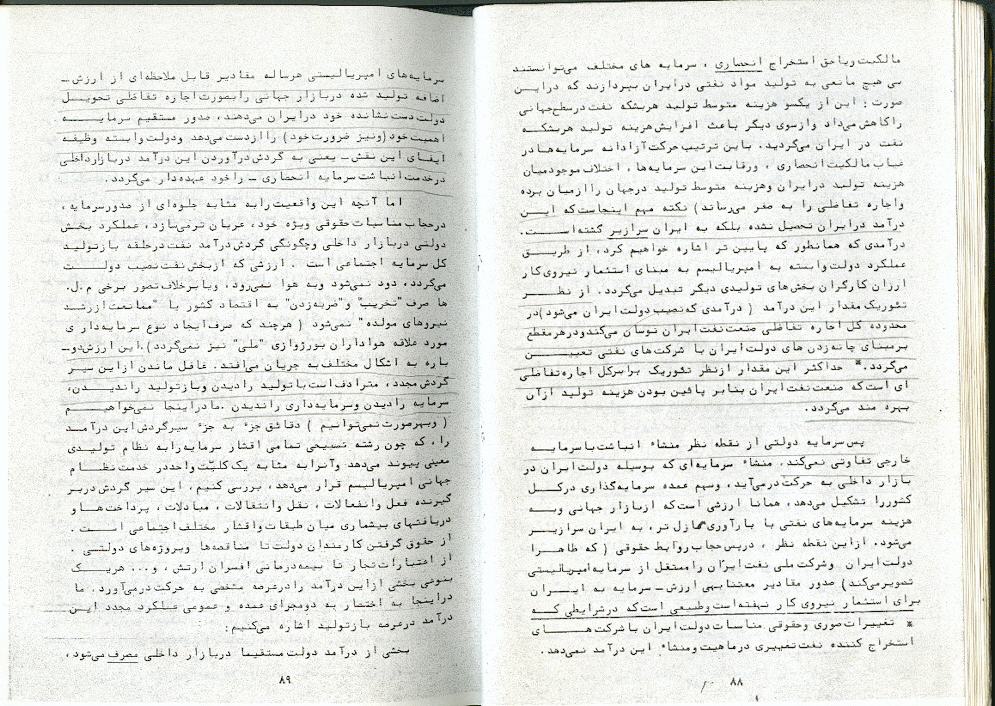 مالکیت ریاحق استخراج انحصاری ، سرمایه های مختلف می‌توانستند
بی هیچ مانعی به تولید مواد نفتی درایران بپردازند که دراین
صورت : این از یکسو هزینه متوسط تولید هربشکه نفت درسطح‌جهانی
راکاهش می‌داد وازسوی دیگر باعث افزایش هزینه تولید هربشکه
نفت در ایران می‌گردید. باین ترتیب حرکت آزادانه سرمایه‌هادر
غیاب مالکیت انحصاری ، ورقابت این سرمایه‌ها ، اختلاف موجودمیان
هزینه تولید درایران وهزینه متوسط تولید درجهان راازمیان برده
واجاره تفاضلی را به صفر می‌رساند) نکته مهم اینجاست‌که ایـــن
درآمد درایران تحصیل نشده بلکه به ایران سرازیر گشته‌اســـت.
درآمدی که همانطور که پایین تر اشاره خواهیم کرد، از طریــق
عملکرد دولت وابسته به امپریالیسم به مبنای استثمار نیروی‌کار
ارزان کارگران بخش‌های تولیدی دیگر تبدیل می‌گردد. از نظـــر
تئوریک مقدار این درآمد ( درآمدی که‌نصیب دولت ایران می‌شود)در
محدوده کل اجاره تفاضلی صنعت نفت ایران نوسان می‌کندودرهرمقطع
برمبنای چانه‌زدن های دولت ایران با شرکت‌های نفتی تعییـــن
می‌گردد.* حداکثر این مقدار ازنظر تئوریک برابرکل اجاره‌تفاضلی
ای است‌که صنعت نفت ایران بنابر پائین بودن هزینه تولید ازآن
بهره مند می‌گردد.
پس سرمایه دولتی از نقطه نظر منشاء انباشت باسرمایـــه
خارجی تفاوتی نمی‌کند. منشاء سرمایه‌ای که بوسیله دولت ایران در
بازار داخلی به حرکت درمی‌آید، وسهم عمده سرمایه‌گذاری درکــل
کشوررا تشکیل می‌دهد، همانا ارزشی است‌که ازبازار جهانی وبـــه
هزینه سرمایه‌های نفتی با بارآوری نازل تر، به ایران سرازیــر
می‌شود. ازاین نقطه نظر ، درپس حجاب روابط حقوقی ( که ظاهـرا
دولت ایران وشرکت ملی نفت ایران رامستقل از سرمایه امپریالیستی
تصویرمی‌کند) صدور مقادیر معتنابهی ارزش ــ سرمایه به ایـــران
برای استثمار نیروی کار نهفته‌است وطبیعی است‌که درشرایطی کــه
* تغییرات صوری وحقوقی مناسبات دولت ایران باشرکت هـــای
استخراج کننده نفت تغییری درماهیت ومنشاء این درآمد نمی‌دهد.
۸۸
سرمایه‌های امپریالیستی هرساله مقادیر قابل ملاحظه‌ای از ارزش ــ
اضافه تولید شده دربازار جهانی رابصورت اجاره تفاضلی تحویـــل
دولت دست نشانده خود درایران می‌دهند، صدور مستقیم سرمایـــه
اهمیت خود (ونیز ضرورت خود) راازدست می‌دهد ودولت وابسته وظیفه
ایفای این نقش ــ یعنی به گردش درآوردن این درآمد دربازارداخلی
درخدمت انباشت سرمایه انحصاری ــ راخود عهده‌دار می‌گردد.
اما آنچه این واقعیت رابه مثابه جلوه‌ای از صدورسرمایه ،
درحجاب مناسبات حقوقی ویژه خود، عریان ترمی‌سازد، عملکرد بخش
دولتی دربازار داخلی وچگونگی گردش درآمد نفت درحلقه بازتولید
کل سرمایه اجتماعی است . ارزشی که ازبخش نفت نصیب دولــــت
می‌گردد، دود نمی‌شود وبه هوا نمی‌رود، ویابرخلاف تصور برخی م.ل.
ها صرف "تخریب" و"ضربه‌زدن" به اقتصاد کشور یا "ممانعت ازرشـد
نیروهای مولده" نمی‌شود ( هرچند که صرف ایجاد نوع سرمایه‌داری
مورد علاقه هواداران بورژوازی "ملی" نیز نمی‌گردد).این ارزش دوــ
باره به اشکال مختلف به جریان می‌افتد. غافل ماندن ازاین سیـر
گردش مجدد، مترادف است باتولید رادیدن وبازتولید راندیـــدن،
سرمایه رادیدن وسرمایه‌داری راندیدن .مادراینجا نمی‌خواهیـــم
( وبهرصورت نمی‌توانیم ) دقائق جزء به جزء سیرگردش این درآمــد
را، که چون رشته تسبیحی تمامی اقشار سرمایه‌رابه نظام تولیدی
معینی پیوند می‌دهد وآنرابه مثابه یک کلیّت واحددر خدمت نظــام
جهانی امپریالیسم قرار می‌دهد، بررسی کنیم. این سیر گردش دربر
گیرنده فعل وانفعالات ، نقل وانتقالات ، مبادلات ، پرداخت هــا و
دریافتهای بیشماری میان طبقات واقشار مختلف اجتماعی اســـت .
از حقوق گرفتن کارمندان دولت تا مناقصه‌ها وپروژه‌های دولتــی ،
از اعتبارات تجار تا بیمه‌درمانی افسران ارتش ، و... هریــک
بنوعی بخشی ازاین درآمد رادرعرصه مشخصی به حرکت درمی‌آورد. ما
دراینجا به اختصار به دومجرای عمده و عمومی عملکرد مجدد ایـن
درآمد درعرصه بازتولید اشاره می‌کنیم:
بخشی از درآمد دولت مستقیما دربازار داخلی مصرف می‌شود،
۸۹